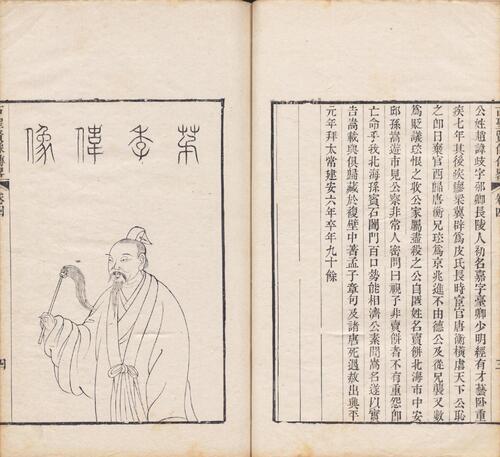 公姓趙諱歧字邠卿長陵人初名嘉字臺卿少明經有才藝卧重
疾七年其後疾瘳梁冀辟爲皮氏長時宦官唐衡橫虐天下公恥
之卽日棄官西歸唐衡兄玹爲京兆進不由德公及從兄襲又數
爲貶議玹恨之收公家屬盡殺之公自匿姓名賣餅北海市中安
邱孫嵩遊市見公察非常人密問曰視子非賣餅者不有重怨卽
亡命乎我北海孫賓石闔門百口勢能相濟公素聞嵩名遂以實
告嵩載與俱歸藏於複壁中著孟子章句及諸唐死遇赦出興平
元年拜太常建安六年卒年九十餘
茅季偉像
卷四
四